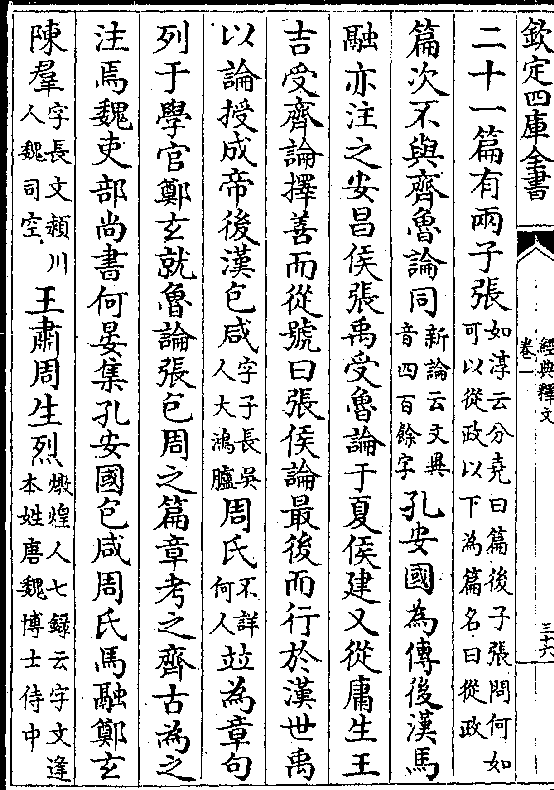 欽定四庫全書
經典釋文
卷一
三十六
二十一篇有兩子張如淳云分堯曰篇後子張問何如可以從政以下為篇名曰從政
篇次不與齊魯論同新論云文異音四百餘字孔安國為傳後漢馬
融亦注之安昌侯張禹受魯論于夏侯建又從庸生王
吉受齊論擇善而從號曰張侯論最後而行於漢世禹
以論授成帝後漢包咸字子長吳人大鴻臚周氏不詳何人竝為章句
列于學官鄭玄就魯論張包周之篇章考之齊古為之
注焉魏吏部尚書何晏集孔安國包咸周氏馬融鄭玄
陳羣字長文潁川人魏司空王肅周生烈燉煌人七録云字文逢本姓唐魏博士侍中